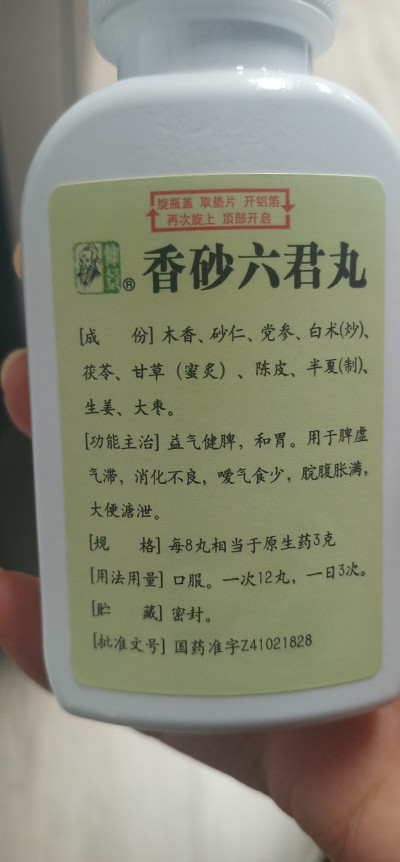 旋瓶盖 取垫片 开铝箔
再次旋上 顶部开启
®
香砂六君丸
[成 份] 木香、砂仁、党参、白术(炒)、
茯苓、甘草（蜜炙）、陈皮、半夏(制)、
生姜、大枣。
[功能主治] 益气健脾，和胃。用于脾虚
气滞，消化不良，嗳气食少，脘腹胀满，
大便溏泄。
[规 格] 每8丸相当于原生药3克
[用法用量] 口服。一次12丸，一日3次。
[贮 藏] 密封。
[批准文号] 国药准字Z41021828